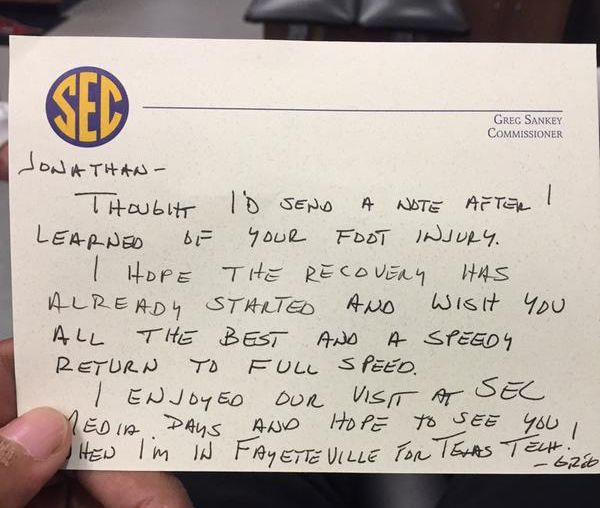 SEC
GREG SANKEY
COMMISSIONER
JONATHAN-
THOUGHT I'D SEND A NOTE AFTER I
LEARNED OF YOUR FOOT INJURY.
I HOPE THE RECOVERY HAS
ALREADY STARTED AND WISH YOU
ALL THE BEST AND A SPEEDY
RETURN TO FULL SPEED.
I ENJOYED OUR VISIT AT SEC
MEDIA DAYS AND HOPE TO SEE YOU
WHEN I'M IN FAYETTEVILLE FOR TEXAS TECH!
-GREG